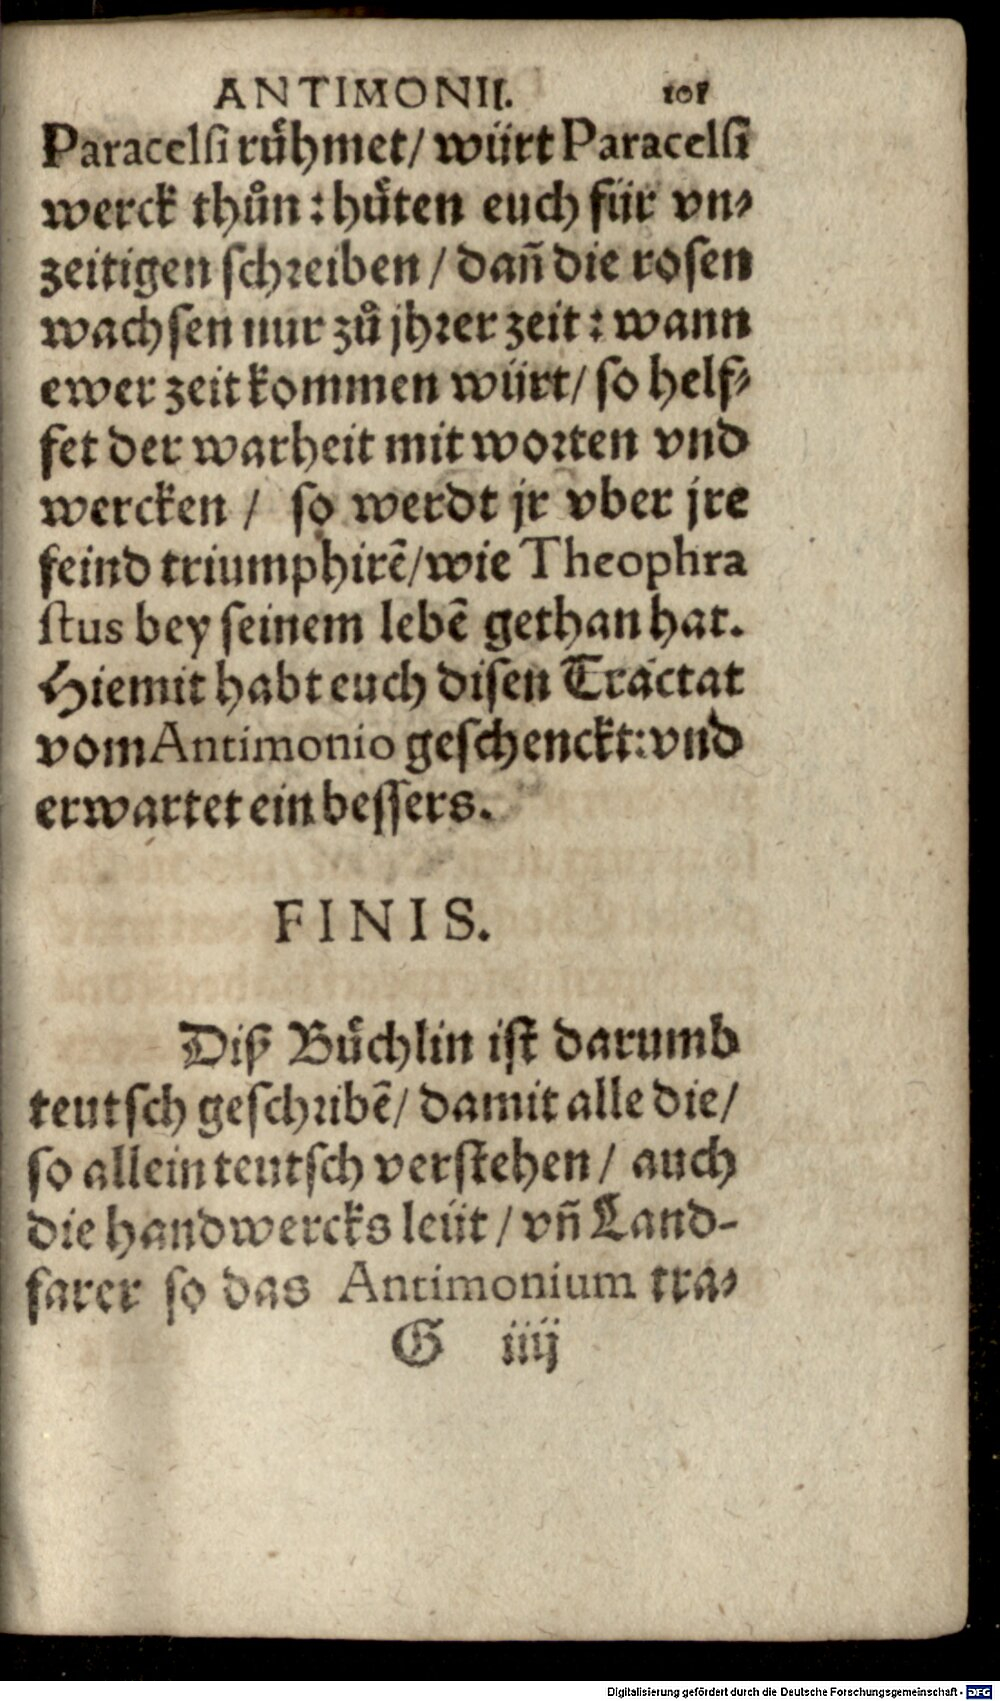 ANTIMONII. 101
Paracelsi ruͤhmet/ würt Paracelsi
werck thuͦn: huͤten euch für vn⸗
zeitigen schreiben/ dañ die rosen
wachsen nur zuͦ jhrer zeit: wann
ewer zeit kommen würt/ so helf⸗
fet der warheit mit worten vnd
wercken/ so werdt jr vber jre
feind triumphirẽ/ wie Theophra
stus bey seinem lebẽ gethan hat.
Hiemit habt euch disen Tractat
vom Antimonio geschenckt: vnd
erwartet ein bessers.
FINIS.
Diß Buͤchlin ist darumb
teutsch geschribẽ/ damit alle die/
so allein teutsch verstehen/ auch
die handwercks leüt/ vñ Land-
farer so das Antimonium tra⸗
G iiij
Digitalisierung gefördert durch die Deutsche Forschungsgemeinschaft - DFG